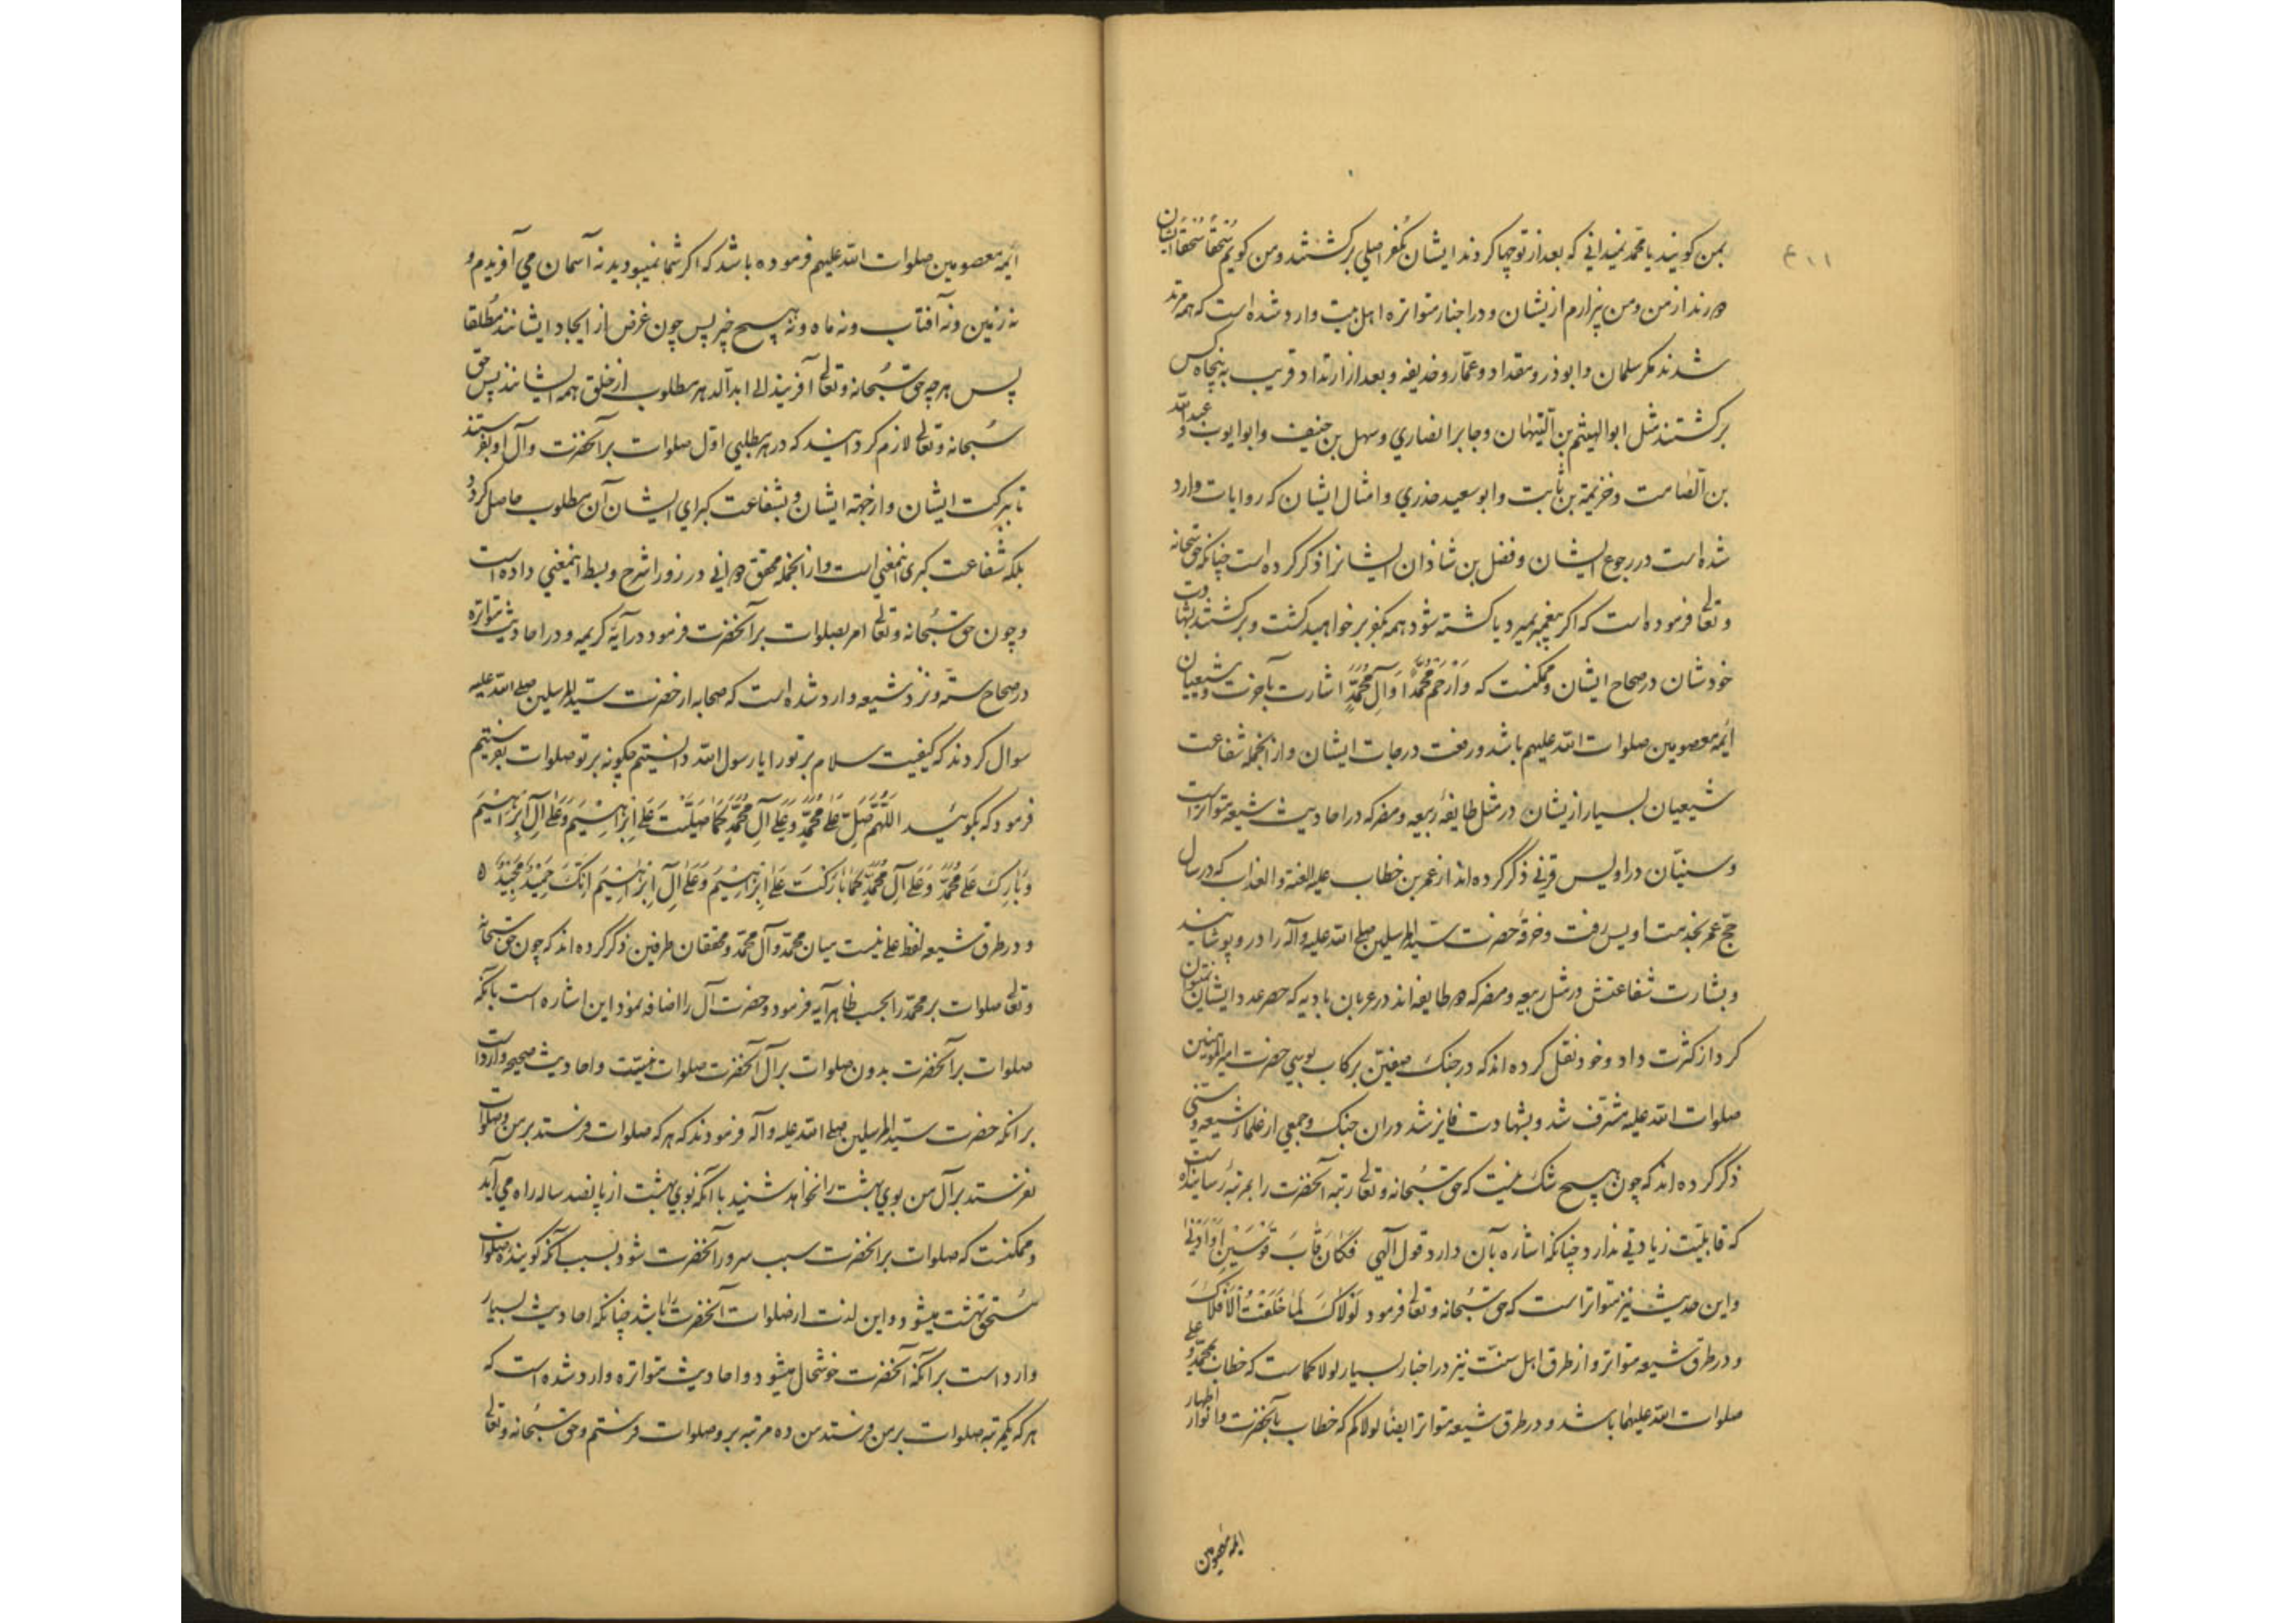 بمن کویند یا محمد نمیدانی که بعد از تو چها کردند ایشان بکفر اصلی برکشتند و من کویم سُحقًا سُحقًا ایشان
دورند از من و من بیزارم ازیشان و در اخبار متواتره اهل بیت وارد شده است که همه مرتد
شدند مکر سلمان و ابوذر و مقداد و عمّار و حذیفه و بعد از ارتداد قریب به پنجاه کس
برکشتند مثل ابو الهیثم بن التّیّهان و جابر انصاري و سهل بن حنیف و ابو ایوب و عبد الله
بن الصّامت و خزیمة بن ثابت و ابو سعید خدري و امثال ایشان که روایات وارد
شده است در رجوع ایشان و فضل بن شاذان ایشانرا ذکر کرده است چنانکه حق سبحانه
و تعالی فرموده است که اکر پیغمبر بمیرد یا کشته شود همه بکفر برخواهید کشت و برکشتند بشهادت
خودشان در صحاح ایشان و ممکنست که وَارْحَمْ مُحَمَّدًا وَآلَ مُحَمَّدٍ اشارت بآخرت و شیعیان
ایمهٔ معصومین صلوات الله علیهم باشد و رفعت درجات ایشان و از انجمله شفاعت
شیعیان بسیار ازیشان در مثل طایفهٔ ربیعه و مضر که در احادیث شیعه متواتر است
و سنیّان در اویس قرنی ذکر کرده اند از عمر بن خطاب علیه اللعنة و العذاب که در سال
حجّ عمر بخدمت اویس رفت و خرقهٔ حضرت سیّد المرسلین صلی الله علیه و آله را در و پوشانید
و بشارت شفاعتش در مثل ربیعه و مضر که دو طایفه اند در عربان بادیه که حصر عدد ایشان نمیتوان
کرد از کثرت داد و خود نقل کرده اند که در جنک صفّین برکاب بوسي حضرت امیر المؤمنین
صلوات الله علیه مشرّف شد و بشهادت فایز شد در ان جنک و جمعي از علماء شیعه و سنّی
ذکر کرده اند که چون هیچ شک نیست که حق سُبحانه و تعالی رتبهٔ آنحضرت را بمرتبهٔ رسانیده است
که قابلیّت زیادتي ندارد چنانکه اشاره بآن دارد قول آلهي فَکَانَ قَابَ قَوْسَیْنِ اَوْ اَدْنٰی
و این حدیث نیز متواتر است که حق سُبحانه و تعالی فرمود لَوْلَاکَ لَمَا خَلَقْتُ الْاَفْلَاکَ
و در طرق شیعه متواتر و از طرق اهل سنّت نیز در اخبار بسیار لولاکما است که خطاب بمحمّد و علی
صلوات الله علیهما باشد و در طرق شیعه متواتر ایضًا لولاکم که خطاب بآنحضرت و اظهار انوار
ایمهٔ معصومین
ایمهٔ معصومین صلوات الله علیهم فرموده باشد که اکر شما نمیبودید نه آسمان مي آفریدم و
نه زمین و نه آفتاب و نه ماه و نه هیچ چیز پس چون غرض از ایجاد ایشانند مُطلقا
پس هر چه حق سُبحانه و تعالی آفریند الی ابد الآباد هر مطلوب از خلق همه ایشانند پس حق
سُبحانه و تعالی لازم کردانید که در هر مطلبي اوّل صلوات بر آنحضرت و آل او بفرستند
تا ببرکت ایشان و از جهة ایشان و بشفاعت کبراي ایشان آن مطلوب حاصل کردد
بلکه شفاعت کبری اینمعنی است و از انجمله محقق دوانی در زورا شرح و بسط اینمعنی داده است
و چون حق سُبحانه و تعالی امر بصلوات بر آنحضرت فرمود در آیهٔ کریمه و در احادیث متواتره
در صحاح ستّه و نزد شیعه وارد شده است که صحابه از حضرت سیّد المرسلین صلی الله علیه
سوال کردند که کیفیت سلام بر تو را یا رسول الله دانستیم چکونه بر تو صلوات بفرستیم
فرمود که بکوئید اللّٰهُمَّ صَلِّ عَلٰی مُحَمَّدٍ وَعَلٰی آلِ مُحَمَّدٍ کَمَا صَلَّیْتَ عَلٰی اِبْرَاهِیْمَ وَعَلٰی آلِ اِبْرَاهِیْمَ
وَبَارِکْ عَلٰی مُحَمَّدٍ وَعَلٰی آلِ مُحَمَّدٍ کَمَا بَارَکْتَ عَلٰی اِبْرَاهِیْمَ وَعَلٰی آلِ اِبْرَاهِیْمَ اِنَّکَ حَمِیْدٌ مَجِیْدٌ ه
و در طرق شیعه لفظ علی نیست میان محمّد و آل محمّد و محققان طرفین ذکر کرده اند که چون حق سُبحانه
و تعالی صلوات بر محمّد را بحسب ظاهر آیه فرمود و حضرت آل را اضافه نمود این اشاره است بآنکه
صلوات بر آنحضرت بدون صلوات بر آل آنحضرت صلوات نیست و احادیث صحیحه وارد است
بر انکه حضرت سیّد المرسلین صلی الله علیه و آله فرمودند که هر که صلوات فرستد بر من و صلوات
نفرستد بر آل من بوي بهشت را نخواهد شنید با آنکه بوي بهشت از پانصد ساله راه می آید
و ممکنست که صلوات بر آنحضرت سبب سرور آنحضرت شود بسبب آنکه کویندهٔ صلوات
مستحق بهشت میشود و این لذت از صلوات آنحضرت را باشد چنانکه احادیث بسیار
وارد است بر آنکه آنحضرت خوشحال میشود و احادیث متواتره وارد شده است که
هر که یکمرتبه صلوات بر من فرستد من ده مرتبه برو صلوات فرستم و حق سُبحانه و تعالی